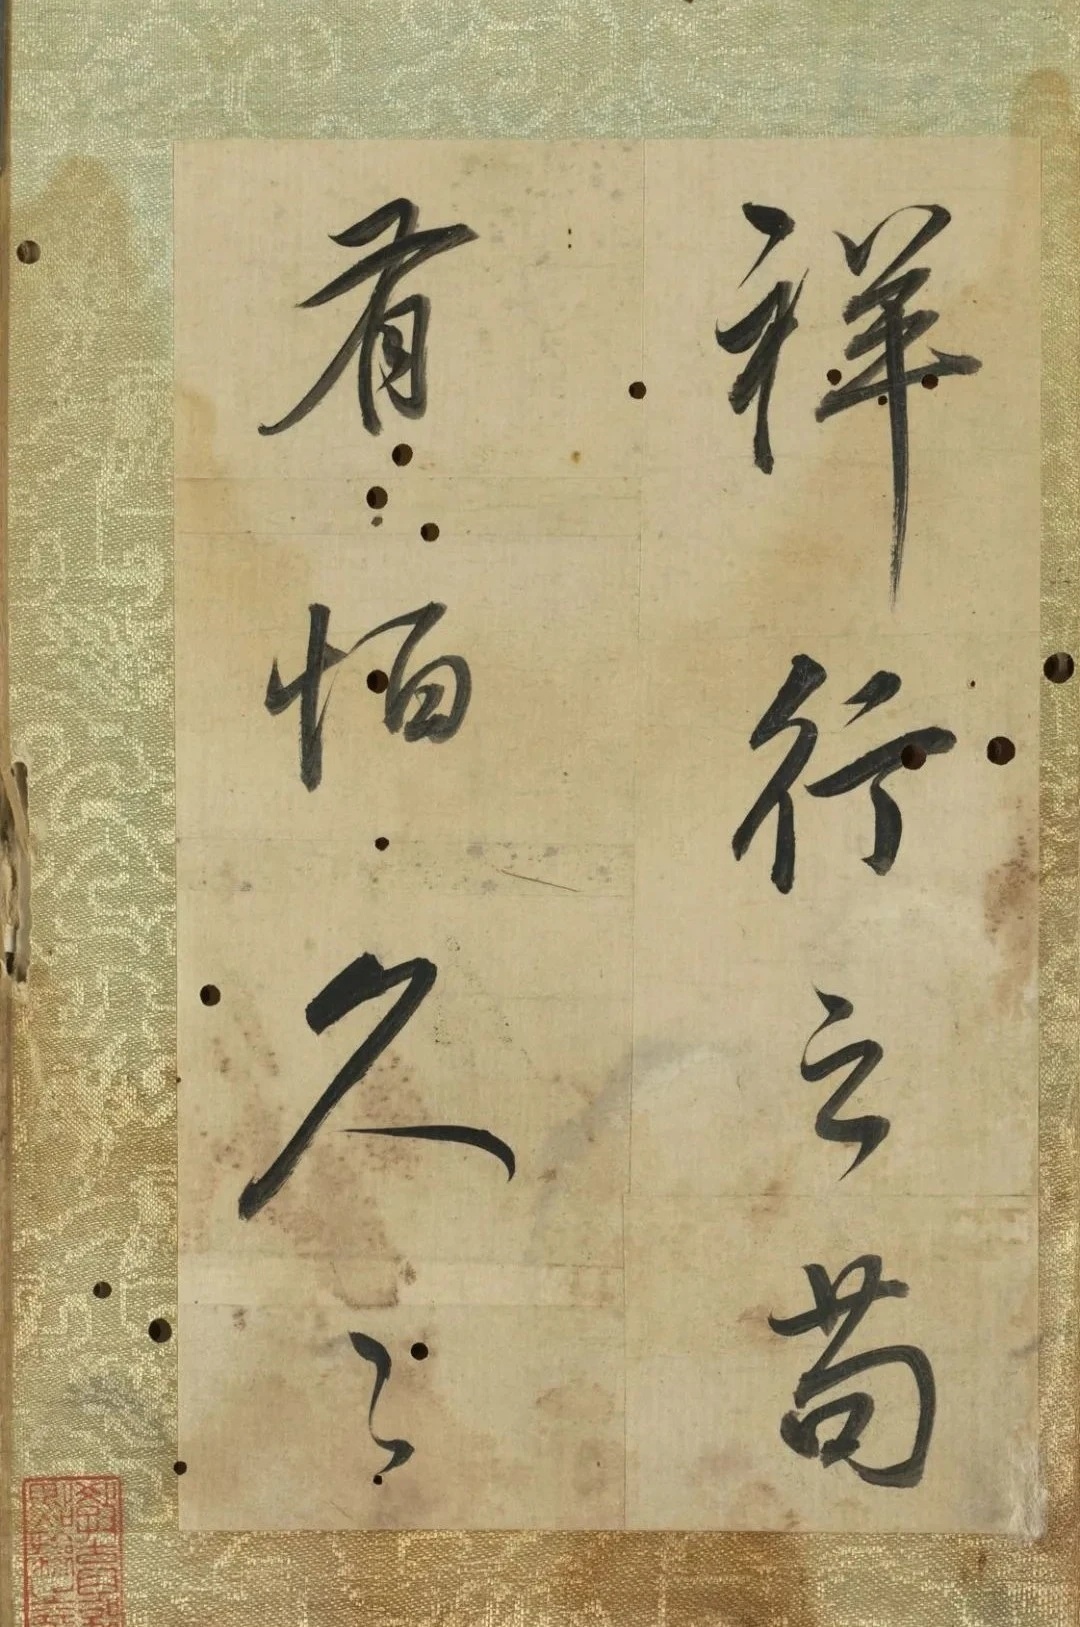 祥行之苟
有恒久々